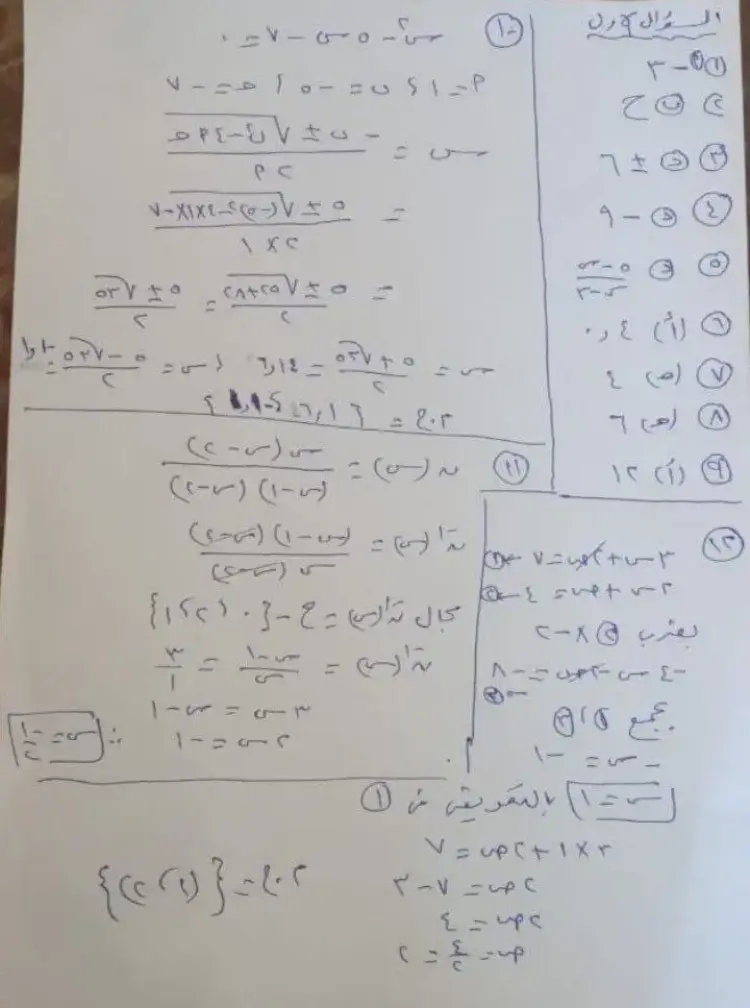 السؤال الأول
① -٣
② ح
③ ± ٦
④ - ٩
⑤ (٥-س)/(س-٣)
⑥ (أ) ٠,٤
⑦ (ج) ٤
⑧ (ج) ٦
⑨ (أ) ١٢
⑩ س٢ - ٥س - ٧ = ٠
م = ١ ، ب = -٥ ، ج = -٧
س = (-ب ± √(ب٢ - ٤ م ج)) / ٢م
= (٥ ± √((-٥)٢ - ٤×١×-٧)) / (٢×١)
= (٥ ± √(٢٥+٢٨)) / ٢ = (٥ ± √٥٣) / ٢
س = (٥ + √٥٣) / ٢ = ٦,١٤ ، س = (٥ - √٥٣) / ٢ = -١,١
م.ح = { ٦,١ ، -١,١ }
⑪ ن(س) = س(س-٢) / (س-١)(س-٢)
ن-١(س) = (س-١)(س-٢) / س(س-٢)
مجال ن-١(س) = ح - {٠ ، ٢ ، ١}
ن-١(س) = (س-١)/س = ٣/١
٣س = س-١
٢س = -١ ∴ س = -١/٢
⑫ ٣س + ٢ص = ٧ ←①
٢س + ص = ٤ ←②
بضرب ② × -٢
-٤س - ٢ص = -٨
←③
بجمع ① ، ③
-س = -١
س = ١ بالتعويض في ①
٣ × ١ + ٢ص = ٧
٢ص = ٧ - ٣
٢ص = ٤
ص = ٤/٢ = ٢
م.ح = {(١ ، ٢)}